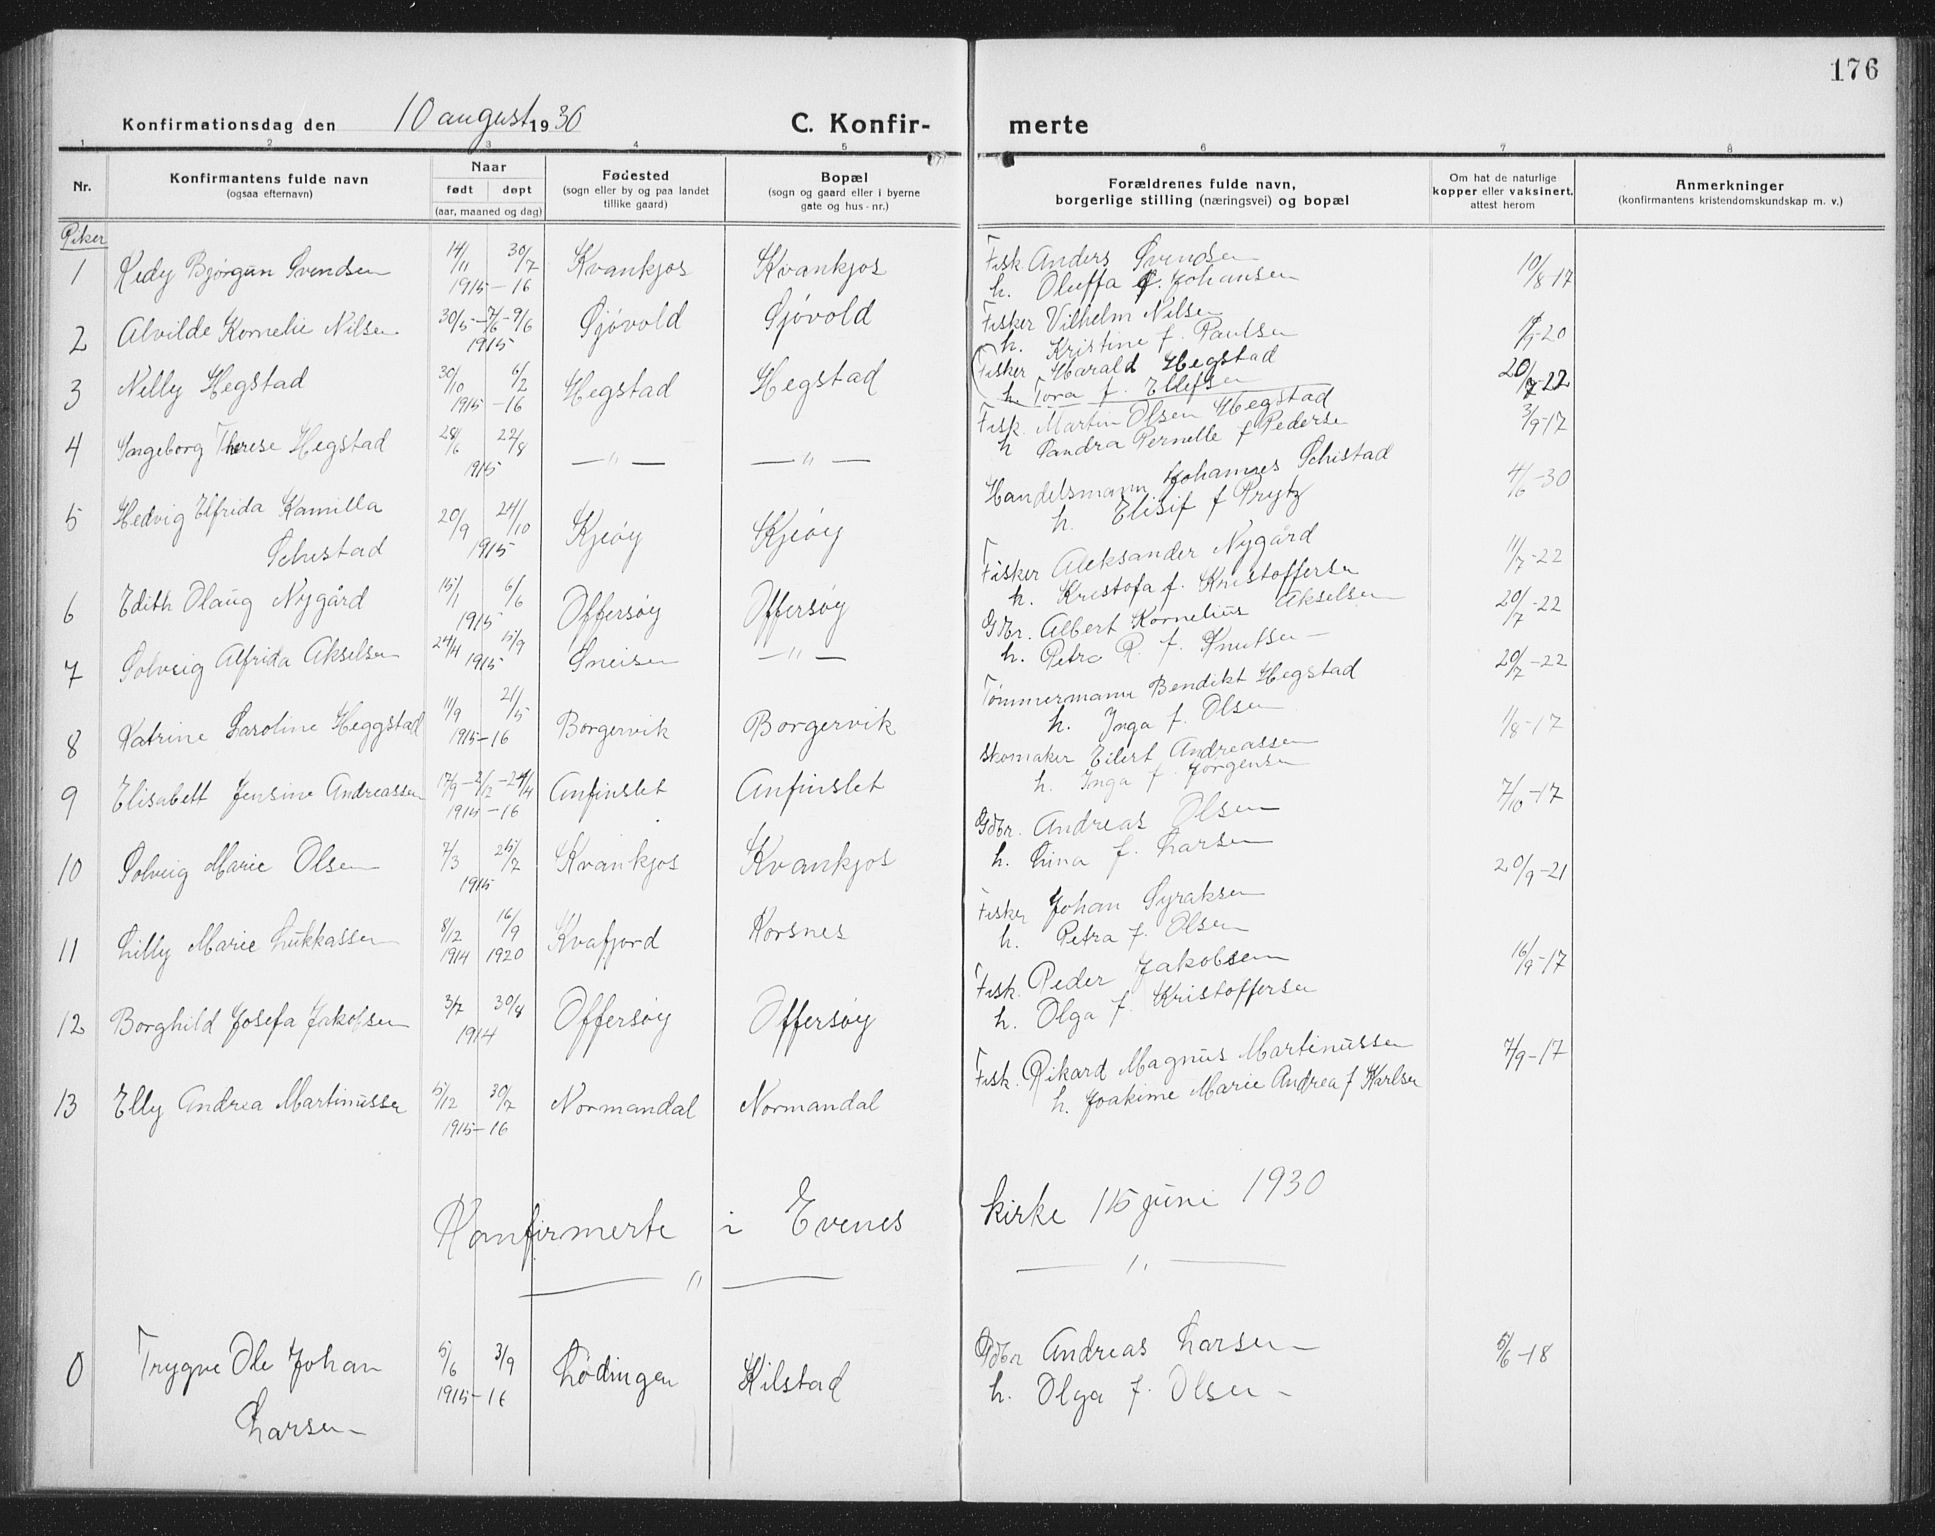 176
Konfirmationsdag den 10 august 1930 C. Konfirmerte
1 2 3 4 5 6 7 8
Nr.
Konfirmantens fulde navn
(ogsaa efternavn)
Naar
født døpt
(aar, maaned og dag)
Fødested
(sogn eller by og paa landet
tillike gaard)
Bopæl
(sogn og gaard eller i byerne
gate og hus-nr.)
Forældrenes fulde navn,
borgerlige stilling (næringsvei) og bopæl
Om hat de naturlige
kopper eller vaksinert,
attest herom
Anmerkninger
(konfirmantens kristendomskundskap m. v.)
Piker
1 Bjørgun Svendsen 14/11 30/7 1915-16 Kvankjos Kvankjos Fisk. Anders Svendsen 10/8-17
h. Oluffa f. Johansen
2 Alvilde Kornelie Nilsen 30/5-7/6-9/6 1915 Sjövold Sjövold Fisker Vilhelm Nilsen -20
h. Kristine f. Paulsen
3 Nelly Hegstad 30/10 6/2 1915-16 Hegstad Hegstad Fisker Harald Hegstad 20/7-22
h. Tora f. Ellefsen
4 Ingeborg Therese Hegstad 28/6 22/8 1915 — " — — " — Fisk. Martin Olsen Hegstad 3/9-17
h Sandra Pernelle f Pedersen
5 Hedvig Elfrida Kamilla 20/9 24/10 1915 Kjeöy Kjeöy Handelsmann Johannes Schistad 4/6-30
Schistad h. Elisif f Prytz
6 Edith Olaug Nygård 15/1 6/6 1915 Offersöy Offersöy Fisker Aleksander Nygård 11/7-22
h. Kristofa f. Kristoffersen
7 Solveig Alfrida Akselsen 24/4 15/9 1915 Sneisen — " — Gdbr. Albert Kornelius Akselsen 20/7-22
h. Petra R. f. Knutsen
8 Katrine Karoline Heggstad 11/9 21/5 1915-16 Borgervik Borgervik Tømmermann Bendikt Hegstad 20/7-22
h. Inga f. Olsen
9 Elisabett Jensine Andreassen 17/9-2/12-24/4 1915-16 Anfinslet Anfinslet Skomaker Eilert Andreassen 1/8-17
h. Inga f. Jörgensen
10 Solveig Marie Olsen 7/3 25/7 1915 Kvankjos Kvankjos Gdbr. Andreas Olsen 7/10-17
h. Lina f. Larsen
11 Lilly Marie Lukkassen 8/12 1914 16/9 1920 Kvafjord Korsnes Fisker Johan Syraksen 20/9-21
h. Petra f. Olsen
12 Borghild Josefa Jakobsen 3/7 30/8 1914 Offersöy Offersöy Fisk. Peder Jakobsen 16/9-17
h. Olga f. Kristoffersen
13 Elly Andrea Martinussen 5/12 30/7 1915-16 Normandal Normandal Fisk. Rikard Magnus Martinussen 7/9-17
h. Joakime Marie Andrea f Karlsen
Konfirmerte i Evenes kirke 15 juni 1930
— " — — " —
0 Trygve Ole Johan 5/6 3/9 1915-16 Lödingen Kilstad Gdbr Andreas Larsen 5/6-18
Larsen h. Olga f. Olsen